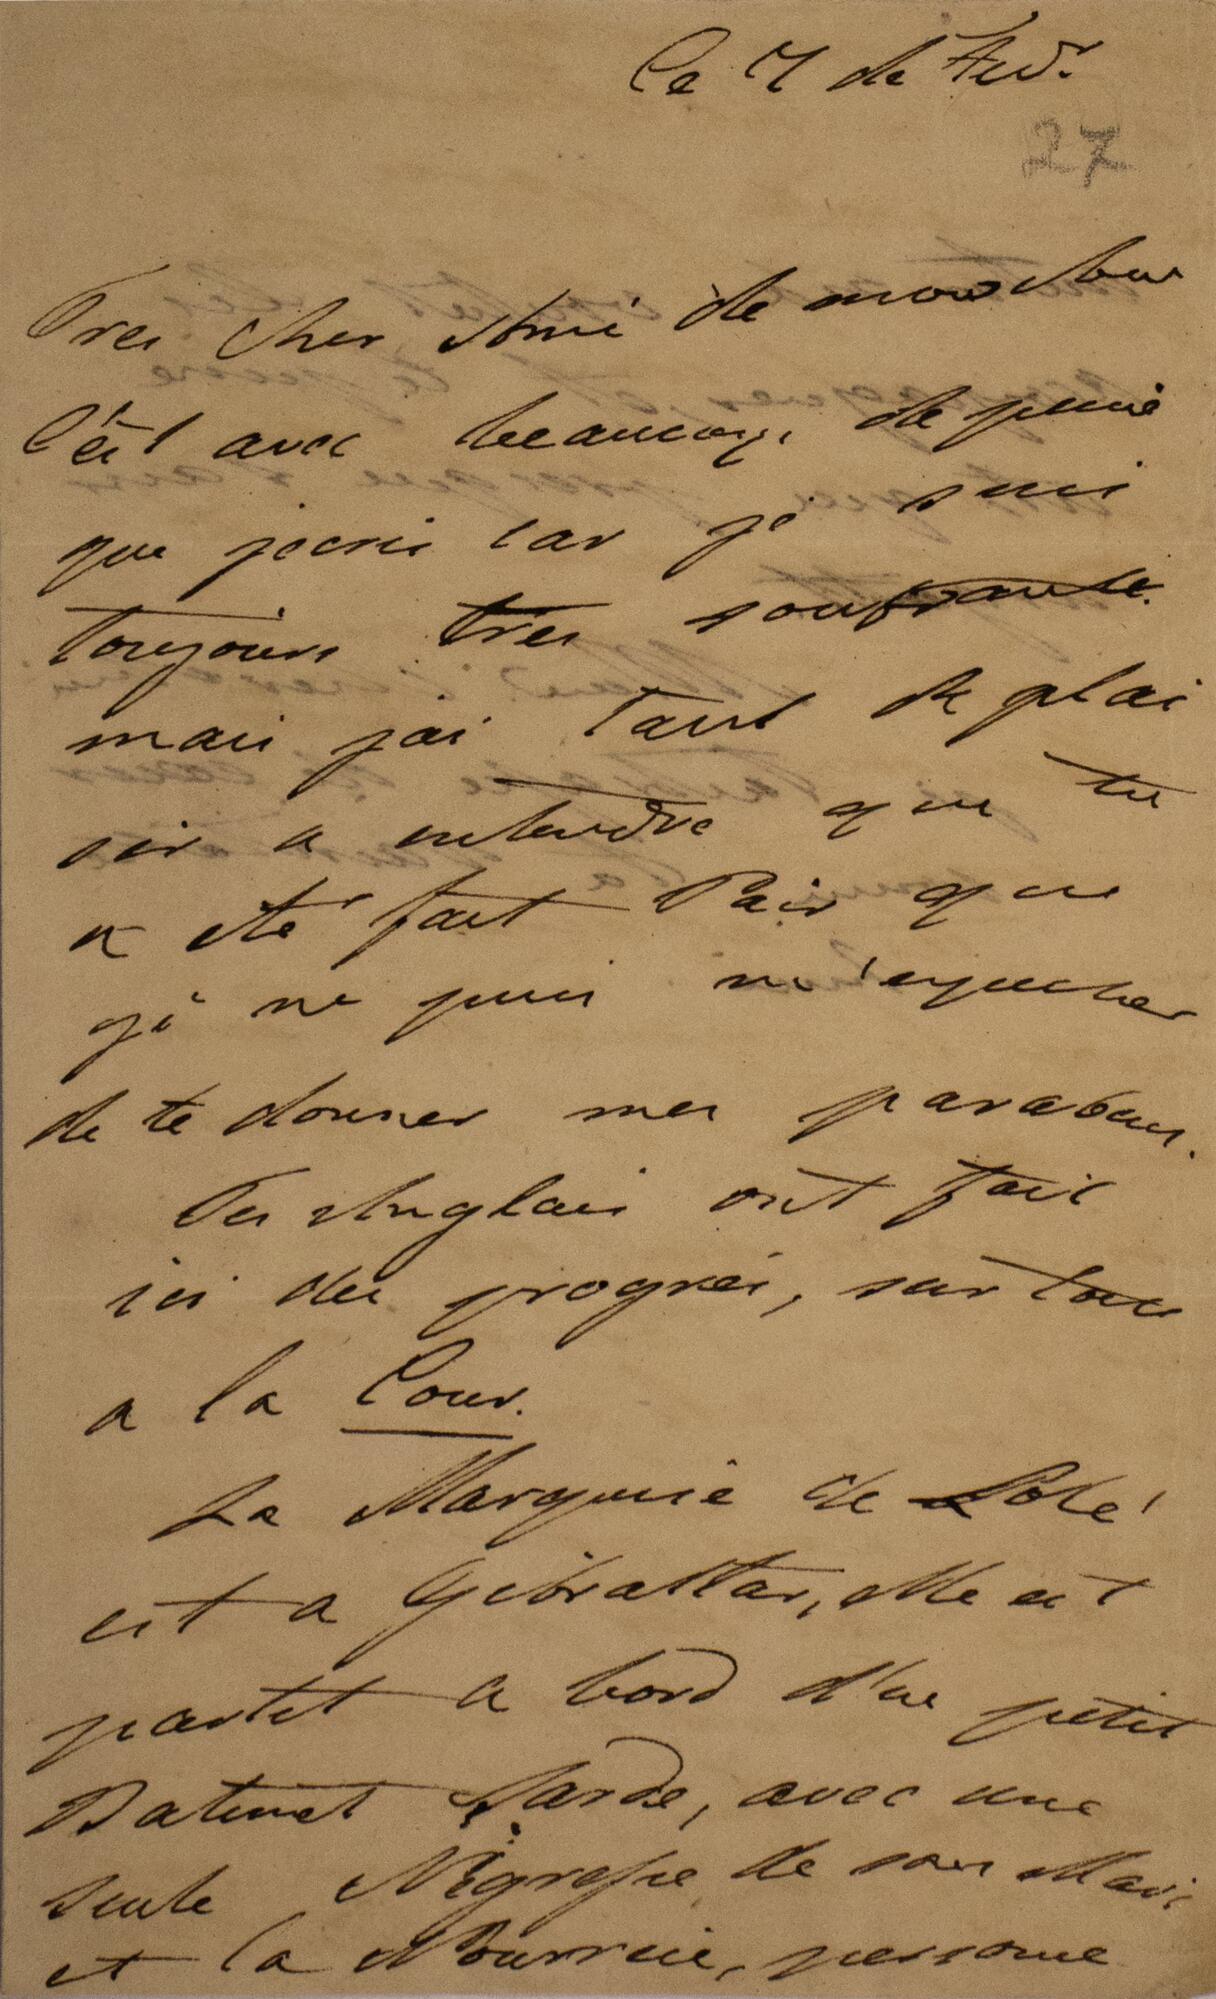 Ce 7 de Fev.
27
Tres cher Ami de mon Ame
C'ést avec beaucoup de peine
que jecris car je suis
toujours tres soufrante
mais jai tant de plai
sir a entendre que tu
a été fait Pair que
je ne puis m'empecher
de te donner mes parabens.
Tes Anglais ont fait
ici des progres, sur tout
a la Cour.
La Marquise de Lolé
est a Gibraltar, elle est
partit a bord d'un petit
Batiment Sarde, avec une
seule Negresse de son Mari
et la Nourrice, personne